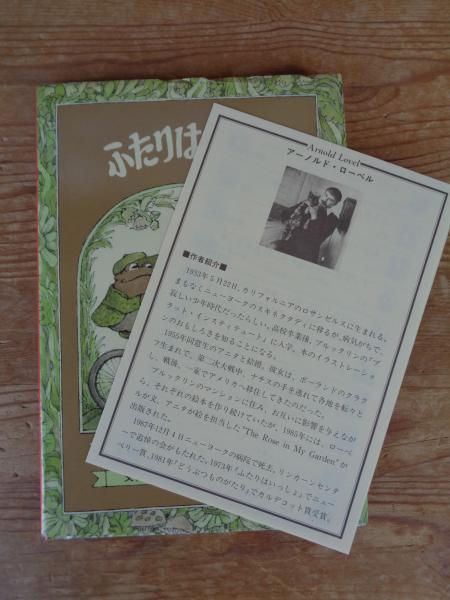 ふたりは
Arnold Lovel
アーノルド・ローベル
■作者紹介■
1933年5月22日、カリフォルニアのロサンゼルスに生まれる。
まもなくニューヨークのスキネクタディに移るが、病気がちで、
寂しい少年時代だったらしい。高校卒業後、ブルックリンの「プ
ラット・インスティテュート」に入学。本のイラストレーショ
ンのおもしろさを知ることになる。
1955年同窓生のアニタと結婚。彼女は、ポーランドのクラク
フ生まれで、第二次大戦中、ナチスの手を逃れて各地を転々と
し、戦後、一家でアメリカへ移住してきたのだった。
ブルックリンのマンションに住み、お互いに影響を与えなが
ら、それぞれの絵本を作り続けていたが、1985年には、ローベ
ルが文、アニタが絵を担当した"The Rose in My Garden"が
出版された。
1987年12月4日ニューヨークの病院で死去。リンカーンセンタ
ーで追悼の会がもたれた。1973年『ふたりはいっしょ』でニュー
ベリー賞、1981年『どうぶつものがたり』でカルデコット賞受賞。